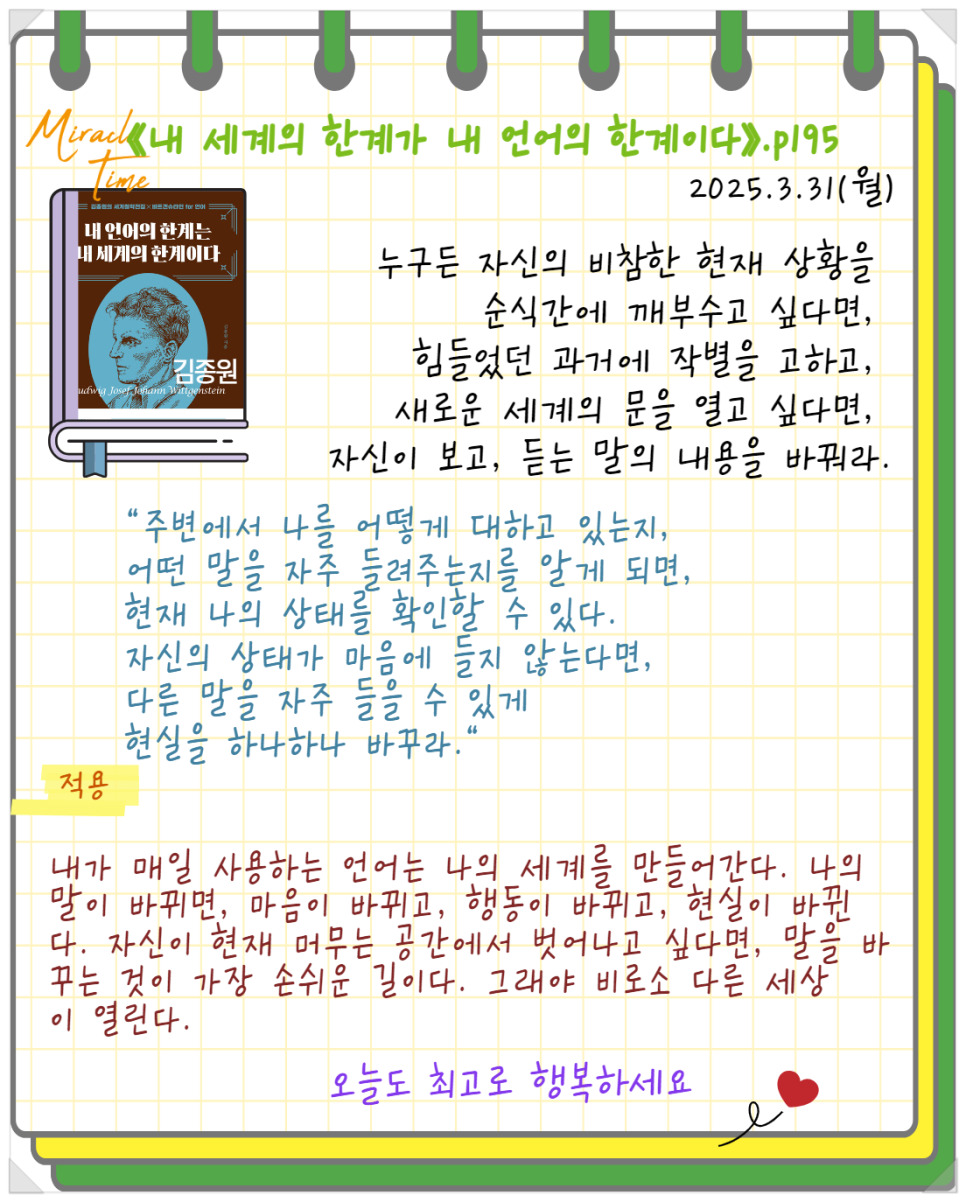 Miracle
Time
《내 세계의 한계가 내 언어의 한계이다》.p195
2025.3.31(월)
내 언어의 한계는
내 세계의 한계이다
김종원
Ludwig Josef Johann Wittgenstein
누구든 자신의 비참한 현재 상황을
순식간에 깨부수고 싶다면,
힘들었던 과거에 작별을 고하고,
새로운 세계의 문을 열고 싶다면,
자신이 보고, 듣는 말의 내용을 바꿔라.
“주변에서 나를 어떻게 대하고 있는지,
어떤 말을 자주 들려주는지를 알게 되면,
현재 나의 상태를 확인할 수 있다.
자신의 상태가 마음에 들지 않는다면,
다른 말을 자주 들을 수 있게
현실을 하나하나 바꾸라.“
적용
내가 매일 사용하는 언어는 나의 세계를 만들어간다. 나의
말이 바뀌면, 마음이 바뀌고, 행동이 바뀌고, 현실이 바뀐
다. 자신이 현재 머무는 공간에서 벗어나고 싶다면, 말을 바
꾸는 것이 가장 손쉬운 길이다. 그래야 비로소 다른 세상
이 열린다.
오늘도 최고로 행복하세요